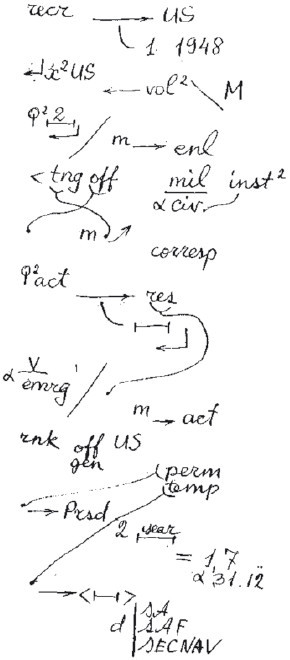 recr → US
1. 1948
x² US
← vol² M
Q² 2
m → enl
< tng off mil inst²
α civ.
m
corresp
Q² act
→ res
α V
emrg'
m → act
rnk off US
gen
(perm
(temp
→ Prsd
2 year
= 1,7
α 31.12
→ < >
d SA
SAF
SECNAV